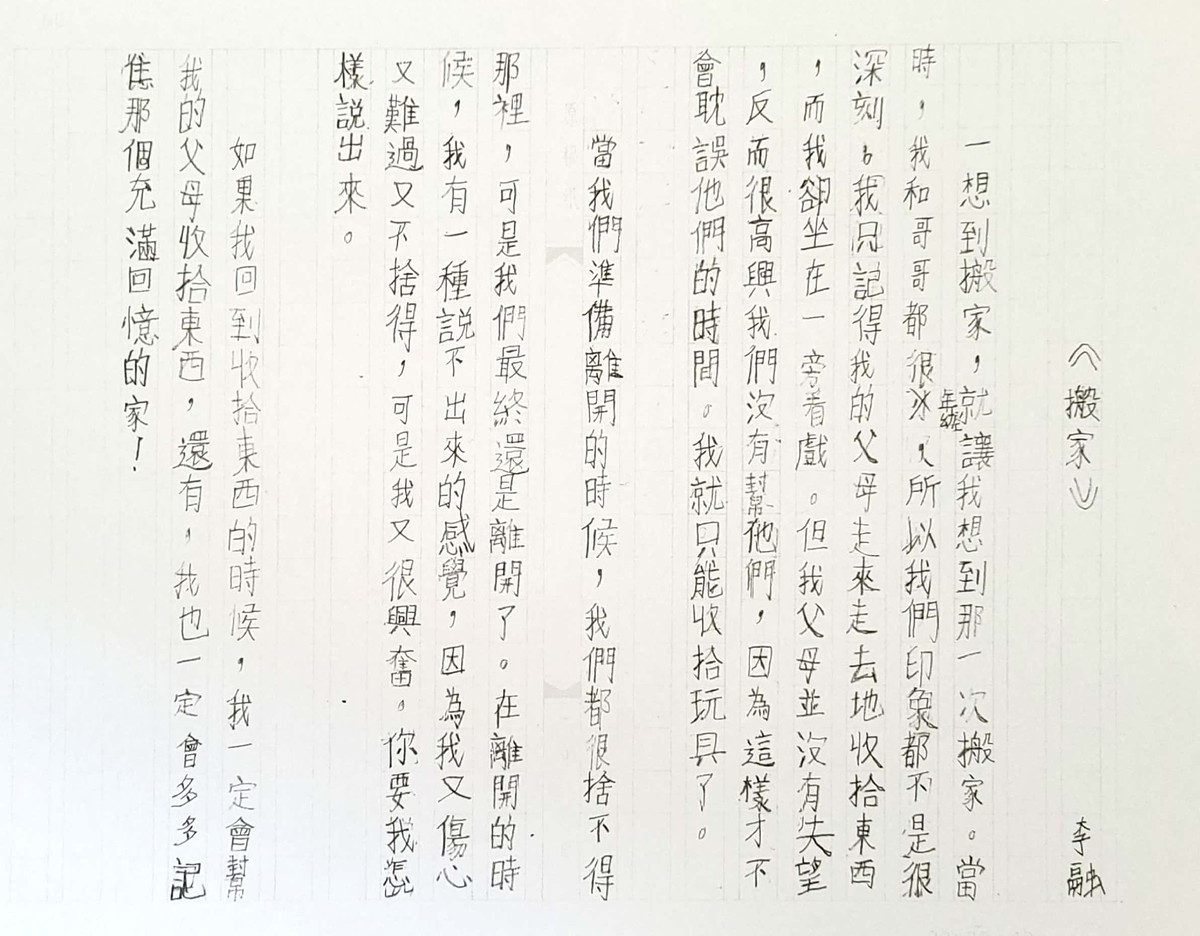 《搬家》 李融
一想到搬家,就讓我想到那一次搬家。當
時,我和哥哥都很年幼,所以我們印象都不是很
深刻。我只記得我的父母走來走去地收拾東西
,而我卻坐在一旁看戲。但我父母並沒有失望
,反而很高興我們沒有幫他們,因為這樣才不
會耽誤他們的時間。我就只能收拾玩具了。
當我們準備離開的時候,我們都很捨不得
那裡,可是我們最終還是離開了。在離開的時
候,我有一種說不出來的感覺,因為我又傷心
又難過又不捨得,可是我又很興奮。你要我怎
樣說出來。
如果我回到收拾東西的時候,我一定會幫
我的父母收拾東西,還有,我也一定會多多記
住那個充滿回憶的家!